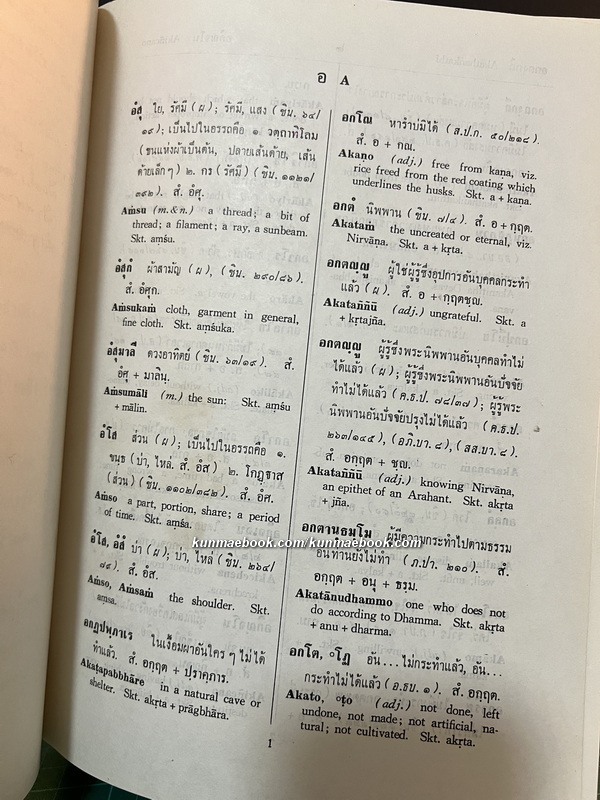 อ A
อํสุ ใย, รัศมี (ผ); รัศมี, แสง (ขิน. ๖๔/
๑๙); เป็นไปในอรรถคือ ๑. วตฺถาทิโลม
(ขนแห่งผ้าเป็นต้น, ปลายเส้นด้าย, เส้น
ด้ายเล็ก ๆ) ๒. กร (รัศมี) (ขิน. ๑๑๒๑/
๓๙๒). สํ. อํศุ.
Aṁsu (m.&n.) a thread; a bit of
thread; a filament; a ray, a sunbeam.
Skt. aṃśu.
อํสุกํ ผ้าสามัญ (ผ), (ขิน. ๒๙๐/๘๖).
สํ. อํศุก.
Aṁsukaṁ cloth, garment in general,
fine cloth. Skt. aṃśuka.
อํสุมาลี ดวงอาทิตย์ (ขิน. ๖๓/๑๙). สํ.
อํศุ + มาลินฺ.
Aṁsumāli (m.) the sun: Skt. aṃśu
+ mālin.
อํโส ส่วน (ผ); เป็นไปในอรรถคือ ๑.
ขนฺธ (บ่า, ไหล่. สํ. อํส) ๒. โกฏฺฐาส
(ส่วน) (ขิน. ๑๑๐๒/๓๘๒). สํ. อํศ.
Aṁso a part, portion, share; a period
of time. Skt. aṃśa.
อํโส, อํสํ บ่า (ผ); บ่า, ไหล่ (ขิน. ๒๖๔/
๗๙). สํ. อํส.
Aṁso, Aṁsaṁ the shoulder. Skt.
aṃsa.
อกฏปพฺภาเร ในเงื้อมผาอันใคร ๆ ไม่ได้
ทำแล้ว. สํ. อกฺฤต + ปฺราคฺภาร.
Akaṭapabbhāre in a natural cave or
shelter. Skt. akṛta + prāgbhāra.
อกโณ หารำบ่มิได้ (ส.ป.ก. ๕๐/๒๑๘).
สํ. อ + กณ.
Akaṇo (adj.) free from kaṇa, viz.
rice freed from the red coating which
underlines the husks. Skt. a + kaṇa.
อกตํ นิพพาน (ขิน. ๗/๔). สํ. อ + กฺฤต.
Akataṁ the uncreated or eternal, viz.
Nirvāṇa. Skt. a + kṛta.
อกตญฺญู ผู้ใช่ผู้รู้ซึ่งอุปการอันบุคคลกระทำ
แล้ว (ผ). สํ. อ + กฺฤตชฺญ.
Akataññū (adj.) ungrateful. Skt. a
+ kṛtajña.
อกตญฺญู ผู้รู้ซึ่งพระนิพพานอันบุคคลทำไม่
ได้แล้ว (ผ); ผู้รู้ซึ่งพระนิพพานอันปัจจัย
ทำไม่ได้แล้ว (ค.ธ.ป. ๗๘/๓๗); ผู้รู้พระ
นิพพานอันปัจจัยปรุงไม่ได้แล้ว (ค.ธ.ป.
๒๖๓/๑๔๕), (อภิ.บา. ๘), (สส.บา. ๘).
สํ. อกฺฤต + ชฺญ.
Akataññū (adj.) knowing Nirvāṇa,
an epithet of an Arahant. Skt. akṛta
+ jña.
kunmaebook.com/kunmaebook.com
อกตานุธมฺโม ผู้มีความกระทำไปตามธรรม
อันท่านยังไม่ทำ (ภ.ปา. ๒๑๐). สํ.
อกฺฤต + อนุ + ธรฺม.
Akatānudhammo one who does not
do according to Dhamma. Skt. akṛta
+ anu + dharma.
อกโต, ๐โฏ อัน...ไม่กระทำแล้ว, อัน...
กระทำไม่ได้แล้ว (อ.ธบ. ๑). สํ. อกฺฤต.
Akato, °ṭo (adj.) not done, left
undone, not made; not artificial, na-
tural; not cultivated. Skt. akṛta.
1